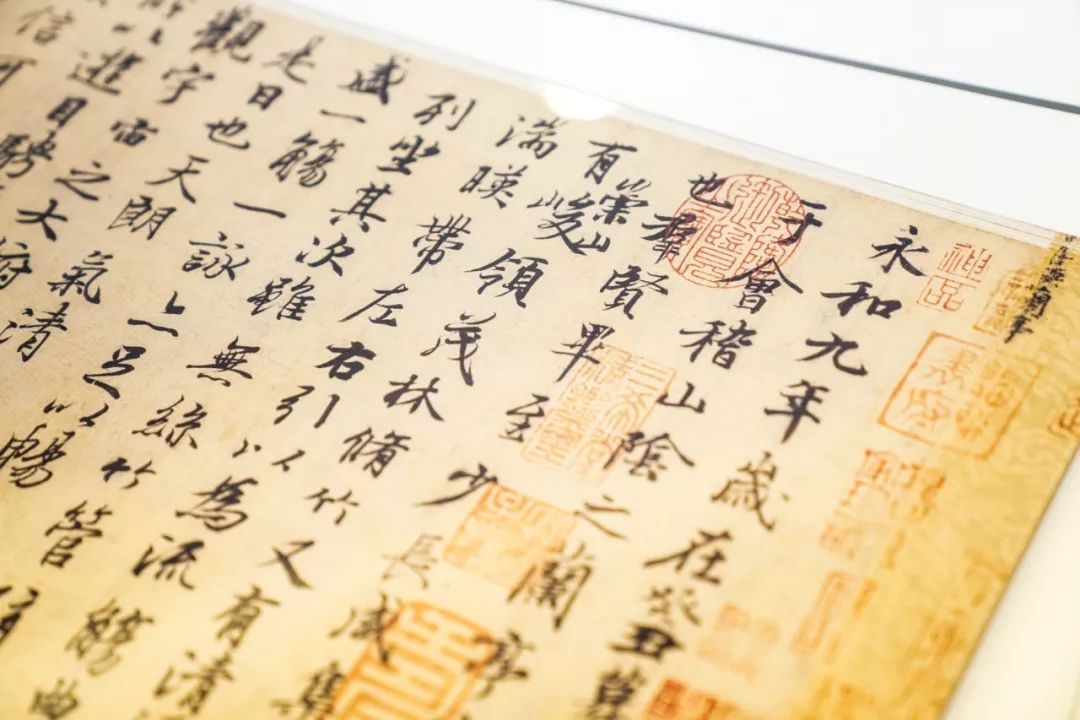 神品
永和九年歲在癸丑暮
于會稽山陰之蘭亭
也羣賢畢至少長咸集
有崇山峻領茂林脩竹又有清
湍暎帶左右引以為流觴曲
列坐其次雖無絲竹管
盛一觴一詠亦足以暢
是日也天朗氣清
觀宇宙之大俯
所以遊目騁
信可